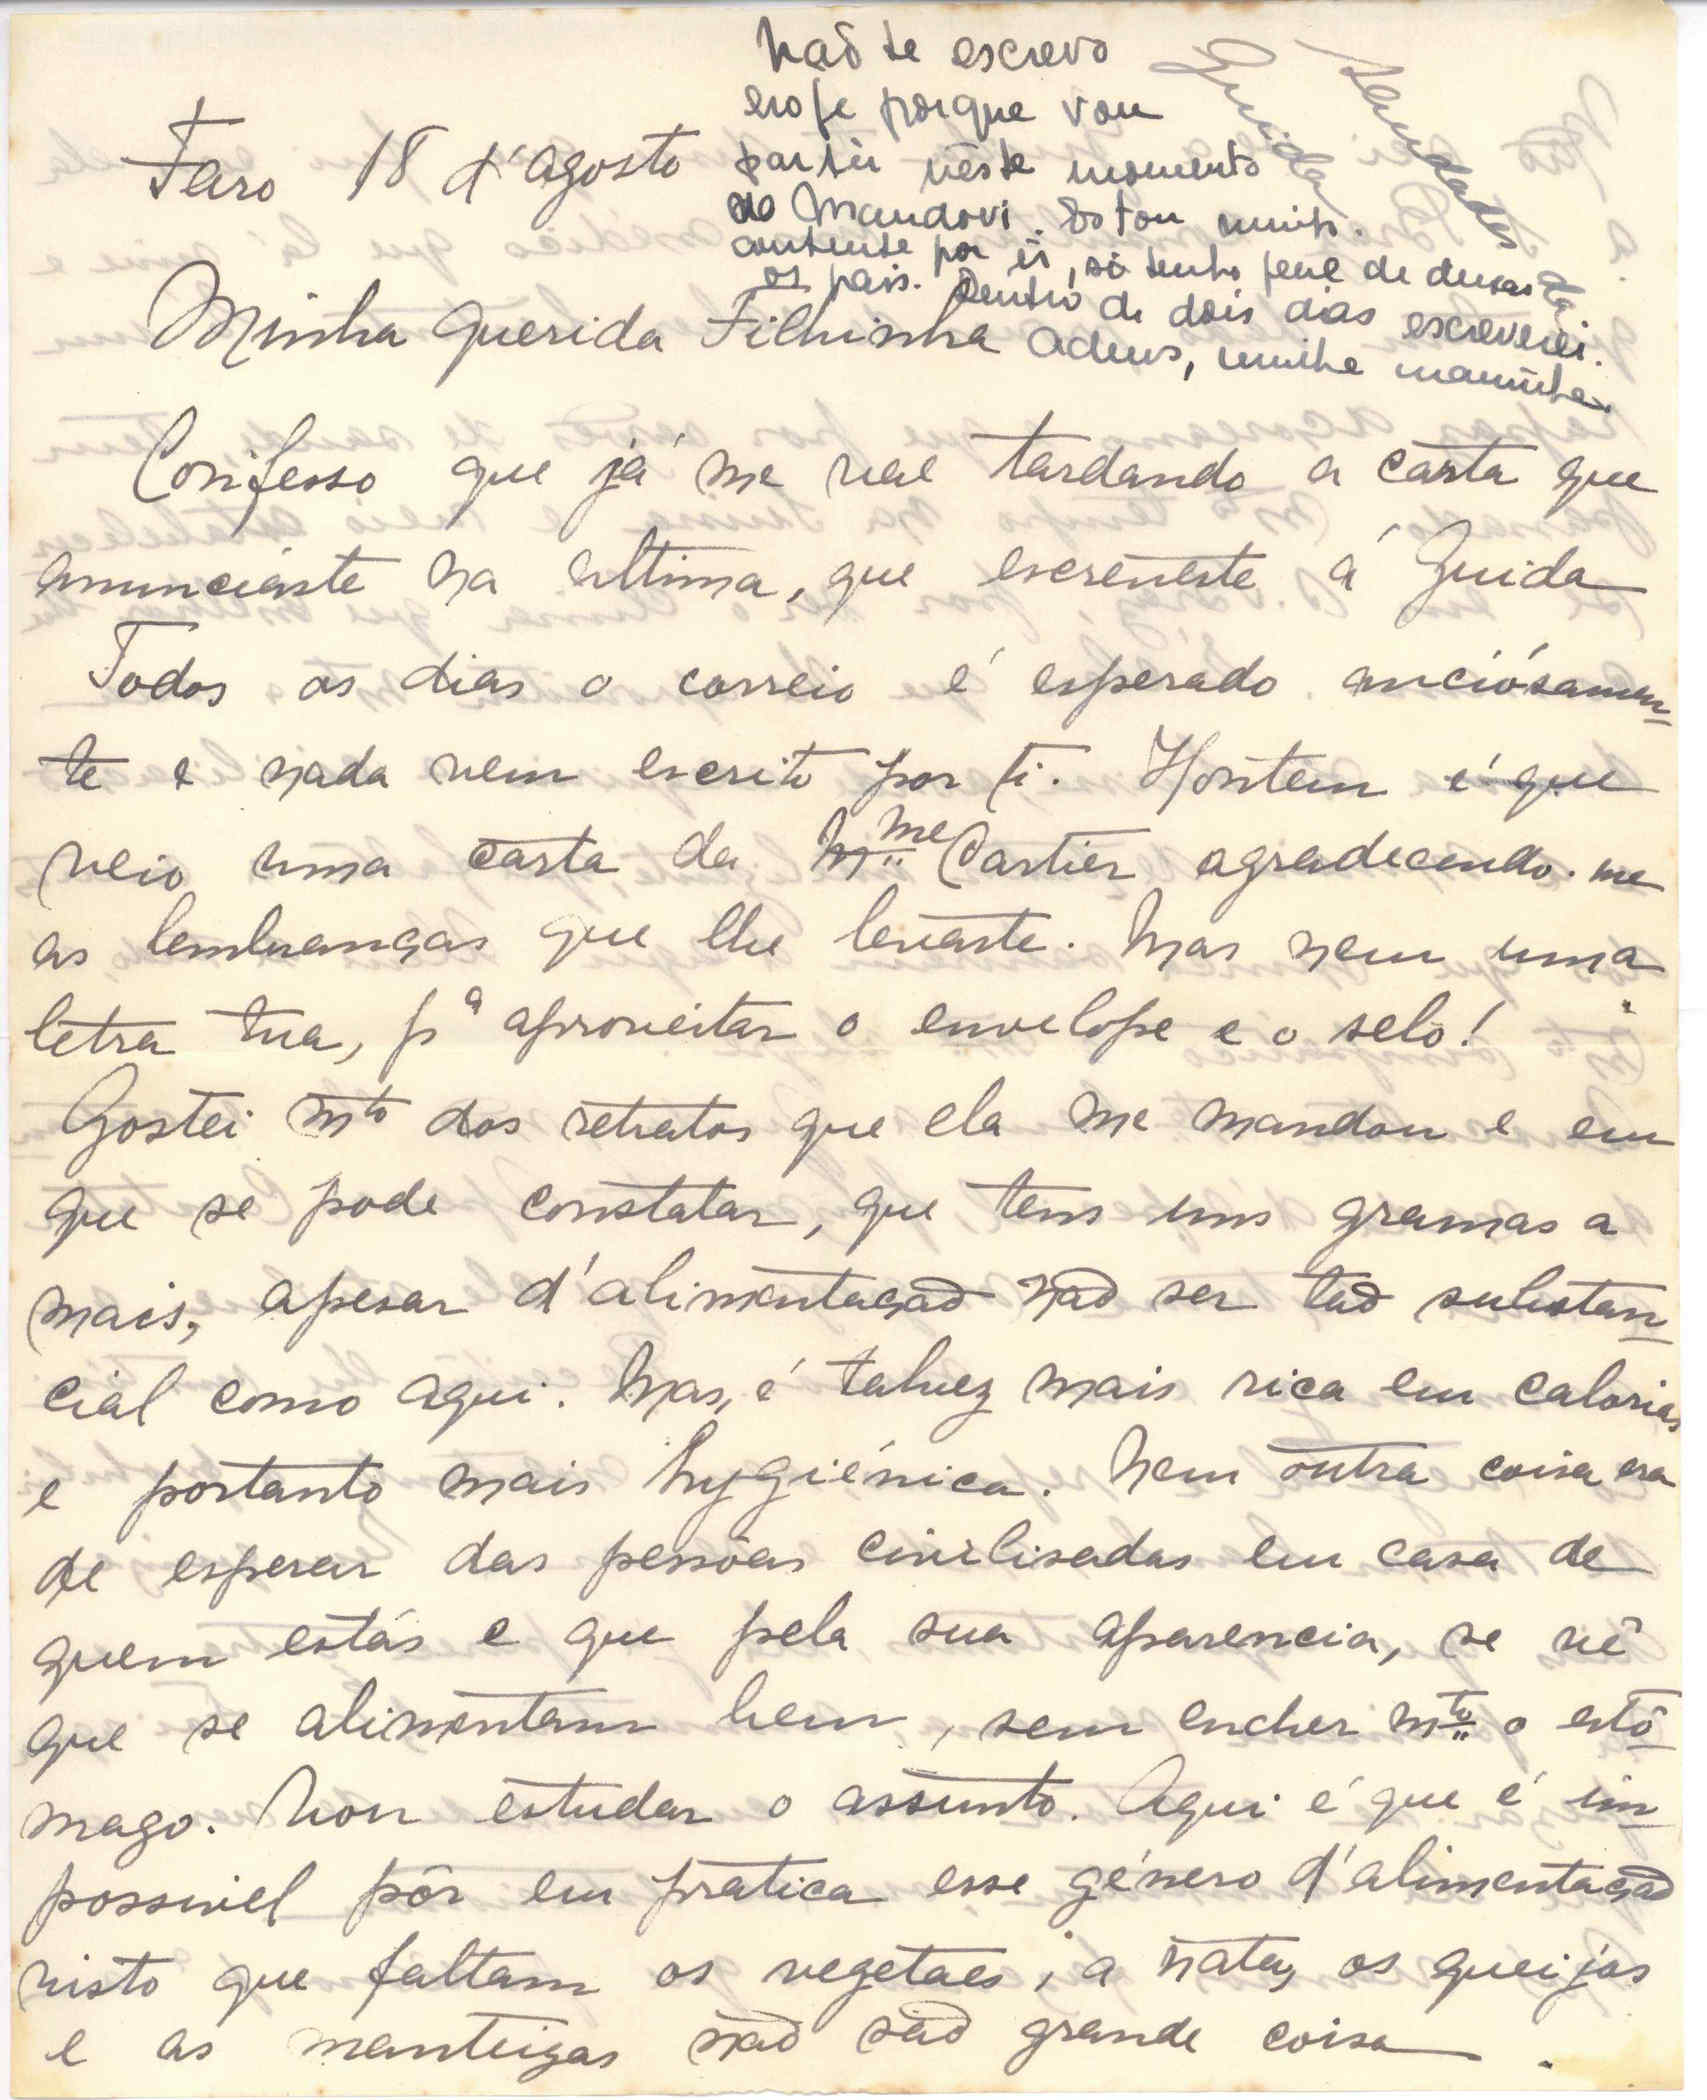 Não te escrevo
hoje porque vou
partir nêste momento
no Mandovi. Estou muito
contente por ir, só tenho pena de deixar
os pais. Dentro de dois dias escreverei.
Adeus, minha maninha.
Saudades da
Guida
Faro 18 d'Agosto
Minha querida Filhinha
Confesso que já me vae tardando a carta que
anunciáste na ultima, que escreveste á Guida
Todos os dias o correio é esperado anciósamen-
te e nada vem escrito por ti. Hontem é que
veio uma carta da Mme Cartier agradecendo-me
as lembranças que lhe levaste. Mas nem uma
letra tua, pª aproveitar o envelope e o selo!
Gostei mto dos retratos que ela me mandou e em
que se pode constatar, que tens uns gramas a
mais, apesar d'alimentação não ser tão substan-
cial como aqui. Mas, é talvez mais rica em calorias
e portanto mais hygiénica. Nem outra coisa era
de esperar das pessôas civilisadas em casa de
quem estás e que pela sua aparencia, se vê
que se alimentam bem, sem encher mto o estô-
mago. Vou estudar o assunto. Aqui é que é im-
possivel pôr em pratica esse género d'alimentação
visto que faltam os vegetaes; a nata, os queijos
e as manteigas não são grande coisa.